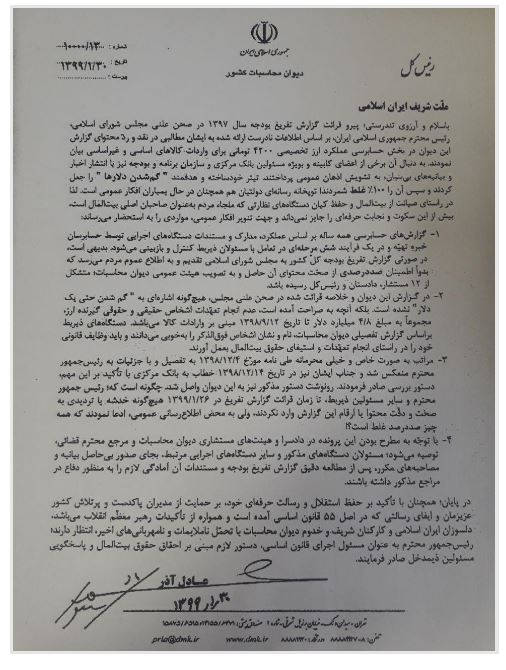 جمهوری اسلامی ایران
دیوان محاسبات کشور
رئیس کل
شماره : ۱۰۰۰۰/۱۳
تاریخ : ۱۳۹۹/۱/۳۰
پیوست :
ملّت شریف ایران اسلامی
باسلام و آرزوی تندرستی؛ پیرو قرائت گزارش تفریغ بودجه سال ۱۳۹۷ در صحن علنی مجلس شورای اسلامی،
رئیس‌جمهور محترم جمهوری اسلامی ایران، بر اساس اطلاعات نادرست ارائه شده به ایشان مطالبی در نقد و ردّ محتوای گزارش
این دیوان در بخش حسابرسی عملکرد ارز تخصیصی ۴۲۰۰ تومانی برای واردات کالاهای اساسی و غیراساسی بیان
نمودند. به دنبال آن برخی از اعضای کابینه و بویژه مسئولین بانک مرکزی و سازمان برنامه و بودجه نیز با انتشار اخبار
و بیانیه‌های بی‌بنیان، به تشویش اذهان عمومی پرداختند. تیتر خودساخته و هدفمند "گم‌شدن دلارها" را جعل
کردند و سپس آن را ۱۰۰٪ غلط شمردند! توپخانه رسانه‌ای دولتیان هم همچنان در حال بمباران افکار عمومی است. لذا
در راستای صیانت از بیت‌المال و حفظ کیان دستگاه‌های نظارتی که ملجاء مردم به‌عنوان صاحبان اصلی بیت‌المال است،
بیش از این سکوت و نجابت حرفه‌ای را جایز نمی‌داند و جهت تنویر افکار عمومی، مواردی را به استحضار می‌رساند:
۱- گزارش‌های حسابرسی همه ساله بر اساس عملکرد، مدارک و مستندات دستگاه‌های اجرایی توسط حسابرسان
خبره تهیّه و در یک فرآیند شش مرحله‌ای در تعامل با مسئولان ذیربط کنترل و بازبینی می‌شود. بدیهی است،
در صورتی گزارش تفریغ بودجه کلّ کشور به مجلس شورای اسلامی تقدیم و به اطلاع عموم مردم می‌رسد که
بدواً اطمینان صددرصدی از صحت محتوای آن حاصل و به تصویب هیئت عمومی دیوان محاسبات؛ متشکل
از ۱۲ مستشار، دادستان و رئیس‌کل رسیده باشد.
۲- در گزارش این دیوان و خلاصه قرائت شده در صحن علنی مجلس، هیچ‌گونه اشاره‌ای به "گم شدن حتی یک
دلار" نشده است. بلکه آنچه به صراحت آمده است، عدم انجام تعهّدات اشخاص حقیقی و حقوقی گیرنده ارز،
مجموعاً به مبلغ ۴/۸ میلیارد دلار تا تاریخ ۱۳۹۸/۹/۱۲ مبنی بر واردات کالا می‌باشد. دستگاه‌های ذیربط
براساس گزارش تفصیلی دیوان محاسبات، نام و نشان اشخاص فوق‌الذکر را به‌خوبی می‌دانند و باید وظایف قانونی
خود را در راستای انجام تعهّدات و استیفای حقوق بیت‌المال بعمل آورند.
۳- مراتب به صورت خاص و خیلی محرمانه طی نامه مورّخ ۱۳۹۸/۱۲/۴ به تفصیل و با جزئیات به رئیس‌جمهور
محترم منعکس شد و جناب ایشان نیز در تاریخ ۱۳۹۸/۱۲/۱۴ خطاب به بانک مرکزی با تأکید بر این مهم،
دستور بررسی صادر فرمودند. رونوشت دستور مذکور نیز به این دیوان واصل شد. چگونه است که؛ رئیس جمهور
محترم و سایر مسئولین ذیربط، تا زمان قرائت گزارش تفریغ در ۱۳۹۹/۱/۲۶ هیچ‌گونه خدشه یا تردیدی به
صحت و دقّت محتوا یا ارقام این گزارش وارد نکردند، ولی به محض اطلاع‌رسانی عمومی، ادعا نمودند که همه
چیز صددرصد غلط است؟!
۴- با توجّه به مطرح بودن این پرونده در دادسرا و هیئت‌های مستشاری دیوان محاسبات و مرجع محترم قضائی،
توصیه می‌شود؛ مسئولان دستگاه‌های مذکور و سایر دستگاه‌های اجرایی مرتبط، بجای صدور بی‌حاصل بیانیه و
مصاحبه‌های مکرر، پس از مطالعه دقیق گزارش تفریغ بودجه و مستندات آن آمادگی لازم را به منظور دفاع در
مراجع مذکور داشته باشند.
در پایان؛ همچنان با تأکید بر حفظ استقلال و رسالت حرفه‌ای خود، بر حمایت از مدیران پاکدست و پرتلاش کشور
عزیزمان و ایفای رسالتی که در اصل ۵۵ قانون اساسی آمده است و همواره از تأکیدات رهبر معظّم انقلاب می‌باشد،
دلسوزان ایران اسلامی و کارکنان شریف و خدوم دیوان محاسبات با تحمّل ناملایمات و نامهربانی‌های اخیر، انتظار دارند؛
رئیس‌جمهور محترم به عنوان مسئول اجرای قانون اساسی، دستور لازم مبنی بر احقاق حقوق بیت‌المال و پاسخگویی
مسئولین ذیمدخل صادر فرمایند.
عادل آذر
۱۳۹۹
pria@dmk.ir www.dmk.ir